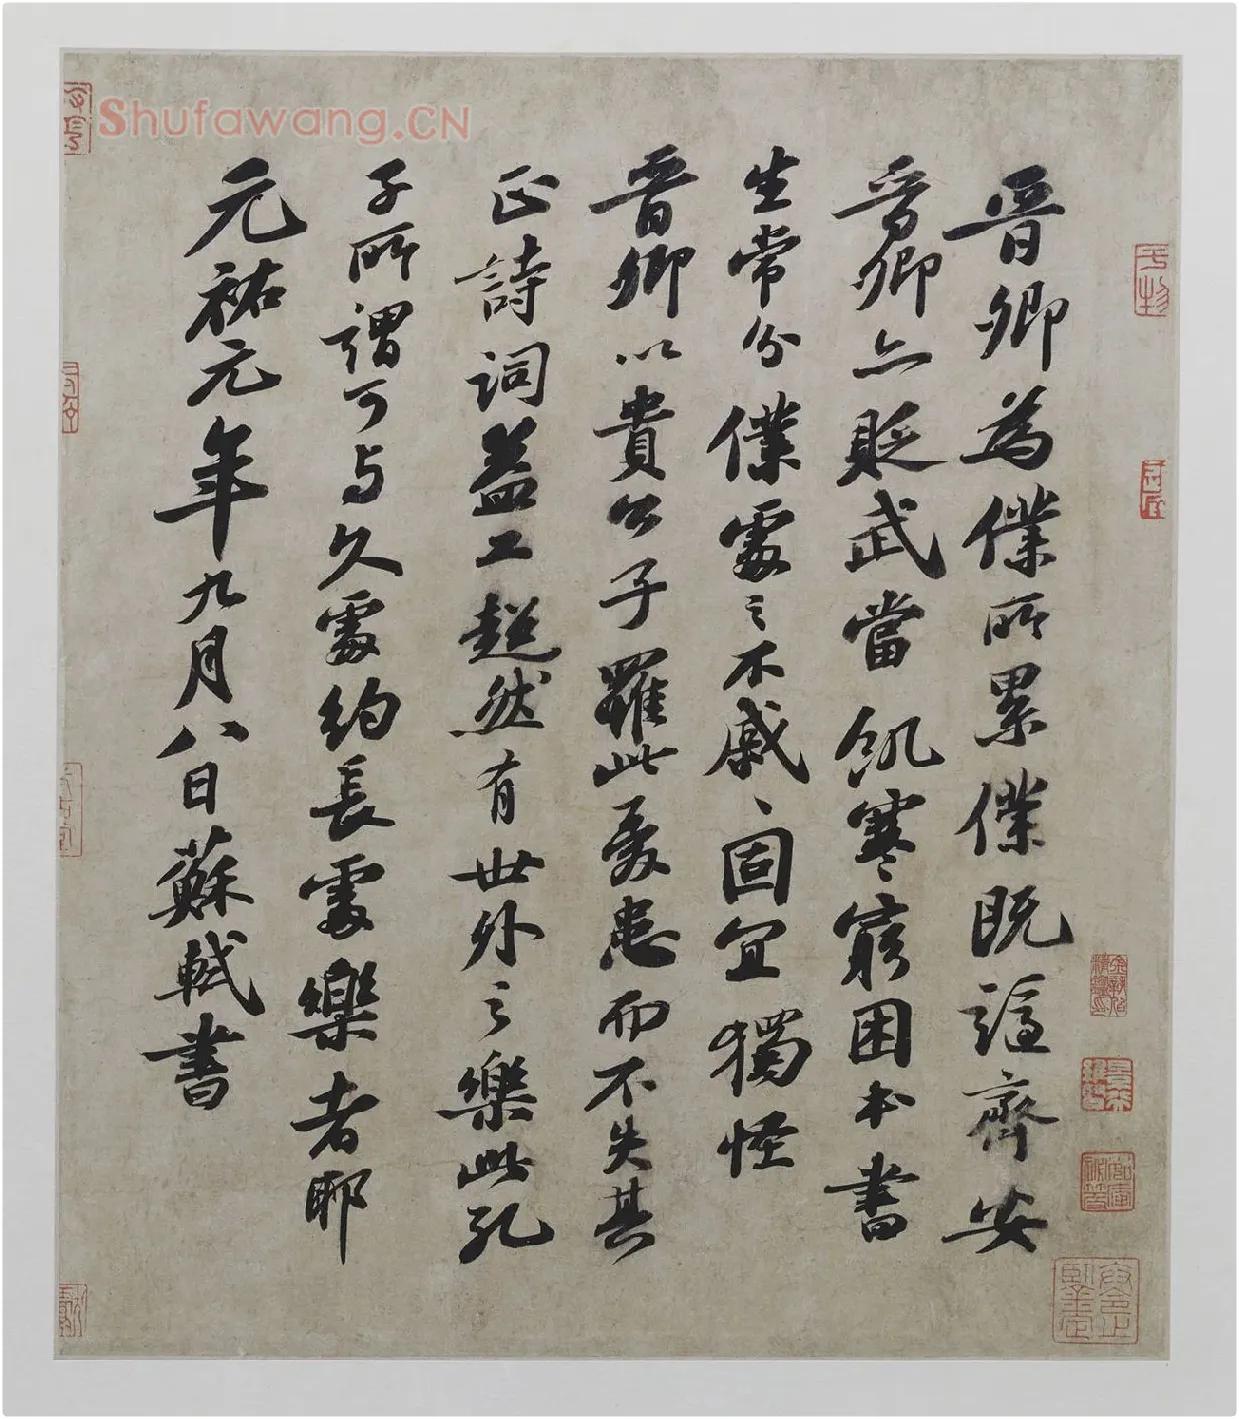 晋卿為僕所累僕既謫齊安
晋卿亦貶武當飢寒窮困本書
生常分僕處之不戚〻固宜獨怪
晋卿以貴公子罹此憂患而不失其
正詩詞益工超然有世外之樂此孔
子所謂可与久處約長處樂者耶
元祐元年九月八日蘇軾書
Shufawang.CN